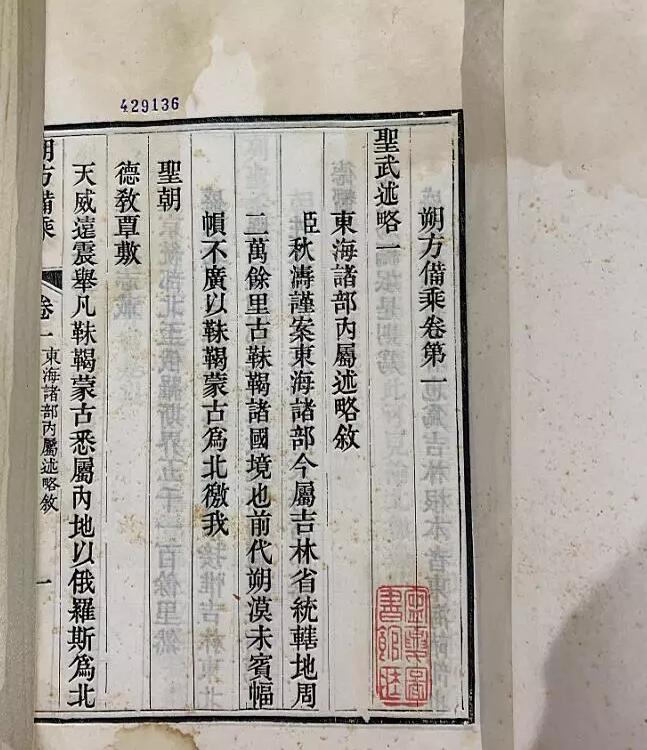 429136
朔方備乘卷第一
聖武述略一
東海諸部內屬述略敘
臣秋濤謹案東海諸部今屬吉林省統轄地周
二萬餘里古靺鞨諸國境也前代朔漠未賓幅
幀不廣以靺鞨蒙古為北徼我
聖朝
德教覃敷
天威遠震舉凡靺鞨蒙古悉屬內地以俄羅斯為北
朔方備乘 卷一 東海諸部內屬述略敘 一